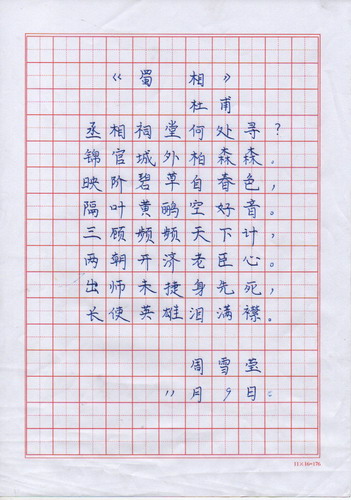 《蜀 相》
杜甫
丞相祠堂何处寻?
锦官城外柏森森。
映阶碧草自春色,
隔叶黄鹂空好音。
三顾频频天下计,
两朝开济老臣心。
出师未捷身先死,
长使英雄泪满襟。
周雪莹
11月9日